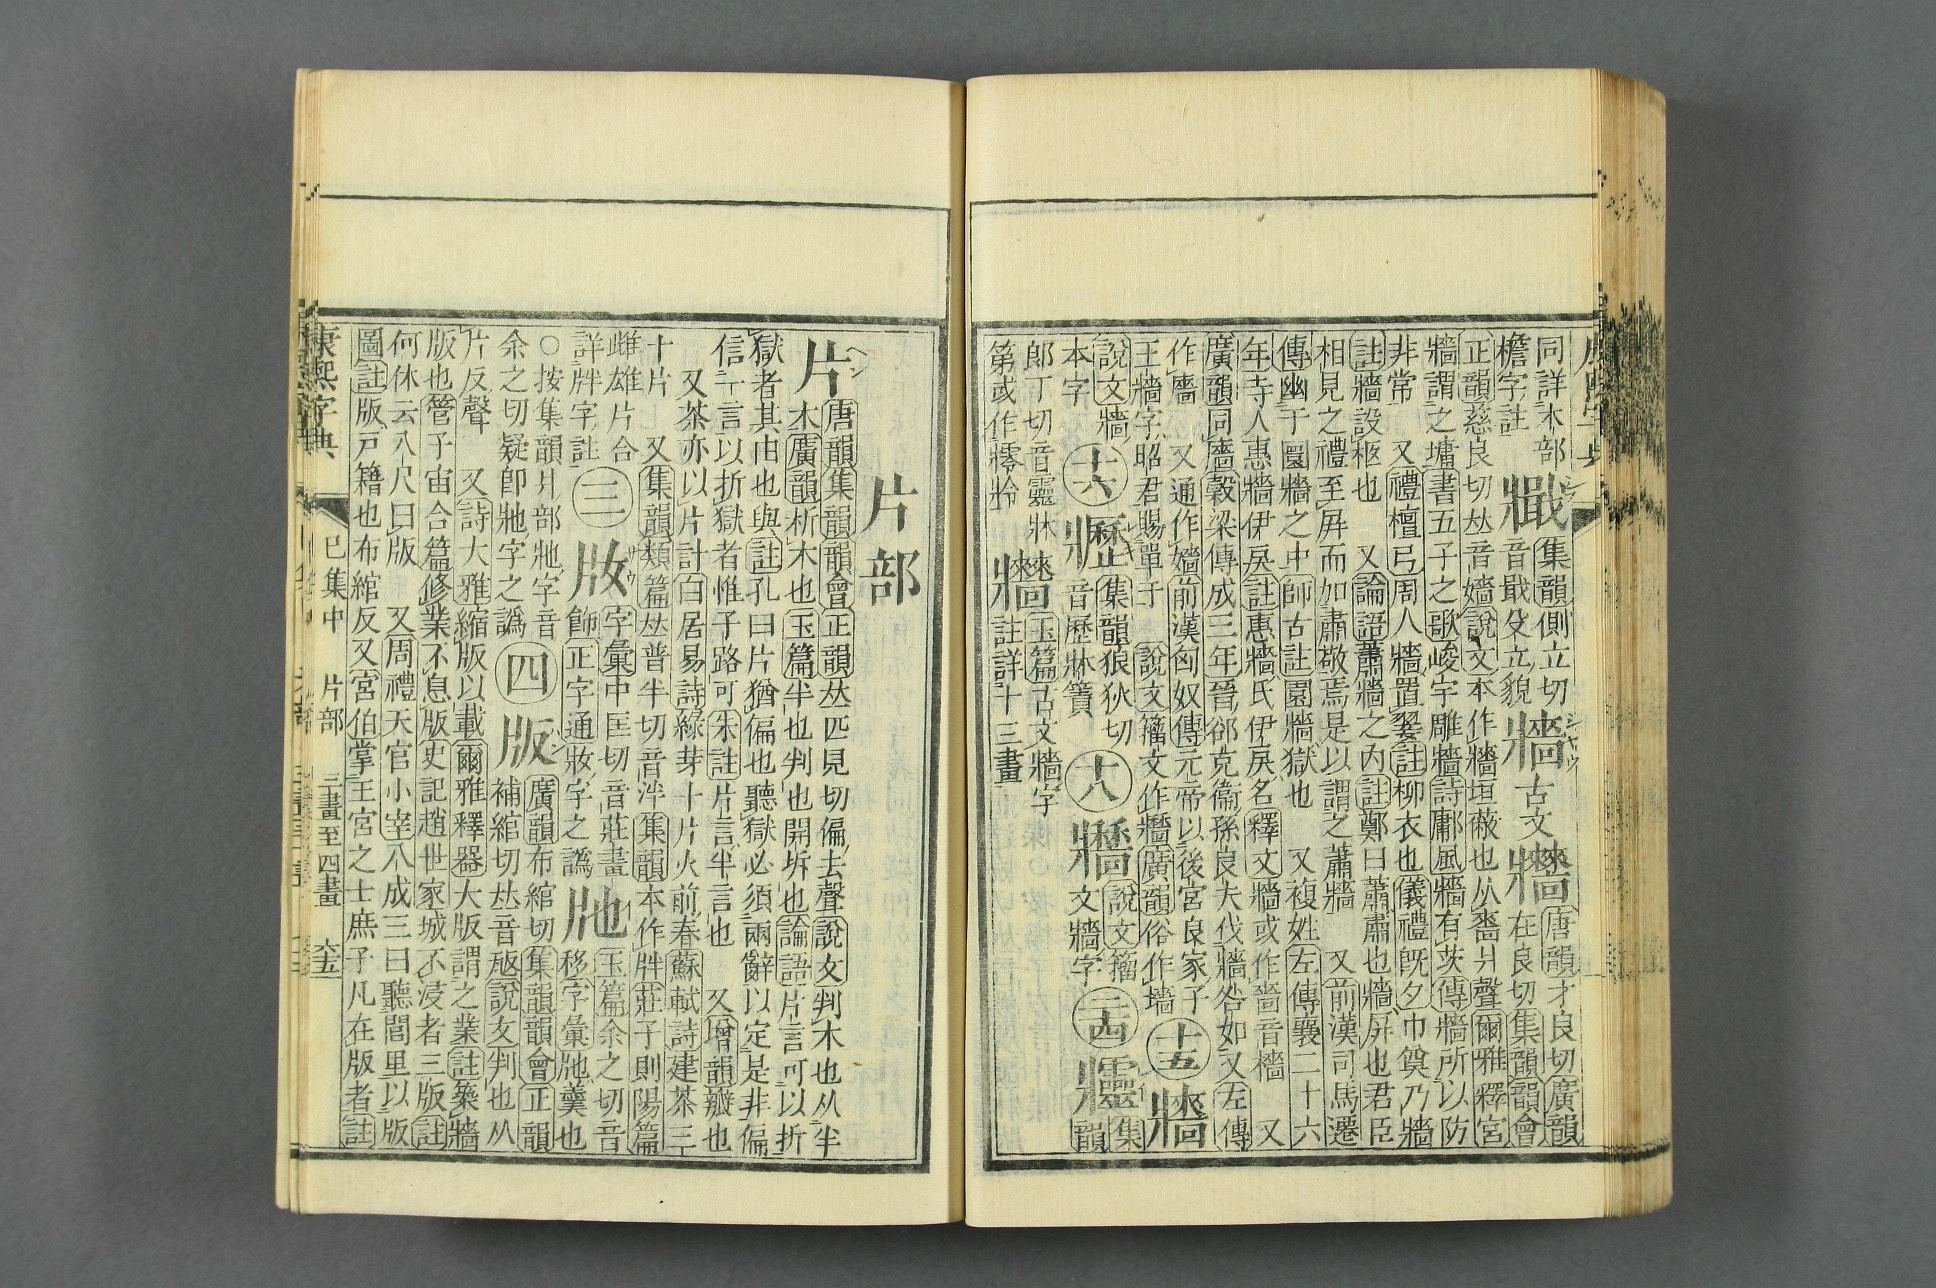 同詳木部
檐字註
牆
集韻側立切
音戢㕛立貌
牆
古文牆
唐韻才良切廣韻
在良切集韻韻會
正韻慈良切𠀤音嬙說文本作牆垣蔽也从嗇爿聲爾雅釋宮
牆謂之墉書五子之歌峻宇雕牆詩鄘風牆有茨傳牆所以防
非常 又禮檀弓周人牆置翣註柳衣也儀禮旣夕巾奠乃牆
註牆設柩也 又論語蕭牆之內註鄭曰蕭肅也牆屛也君臣
相見之禮至屛而加肅敬焉是以謂之蕭牆 又前漢司馬遷
傳幽于圜牆之中師古註圜牆獄也 又複姓左傳襄二十六
年寺人惠牆伊戾註惠牆氏伊戾名釋文牆或作嗇音檣 又
廣韻同廧穀梁傳成三年晉郤克衞孫良夫伐牆咎如又左傳
作廧 又通作嬙前漢匈奴傳元帝以後宮良家子
王牆字昭君賜單于 說文籀文作牆廣韻俗作墻
十五
牆
說文牆
本字
十六
㱹
集韻狼狄切
音歷牀簀
十八
牆
說文籀
文牆字
二十四
集韻
郎丁切音靈牀
第或作㸳㸳
牆
玉篇古文牆字
註詳十三畫
片部
片
唐韻集韻韻會正韻𠀤匹見切偏去聲說文判木也从半
木廣韻析木也玉篇半也判也開坼也論語片言可以折
獄者其由也與註孔曰片猶偏也聽獄必須兩辭以定是非偏
信一言以折獄者惟子路可朱註片言半言也 又增韻瓣也
又茶亦以片計白居易詩綠芽十片火前春蘇軾詩建茶三
十片 又集韻類篇𠀤普半切音泮集韻本作牉莊子則陽篇
雌雄片合
詳牉字註
三
㸏
字彙中匡切音莊畫
飾正字通妝字之譌
㸐
玉篇余之切音
移字彙㸐羹也
○按集韻爿部㸐字音
余之切疑卽㸐字之譌
四
版
廣韻布綰切集韻韻會正韻
補綰切𠀤音㼎說文判也从
片反聲 又詩大雅縮版以載爾雅釋器大版謂之業註築牆
版也管子宙合篇修業不息版史記趙世家城不浸者三版註
何休云八尺曰版 又周禮天官小宰八成三曰聽閭里以版
圖註版戸籍也布綰反又宮伯掌王宮之士庶子凡在版者註
康熙字典 巳集中 片部 三畫至四畫 六五